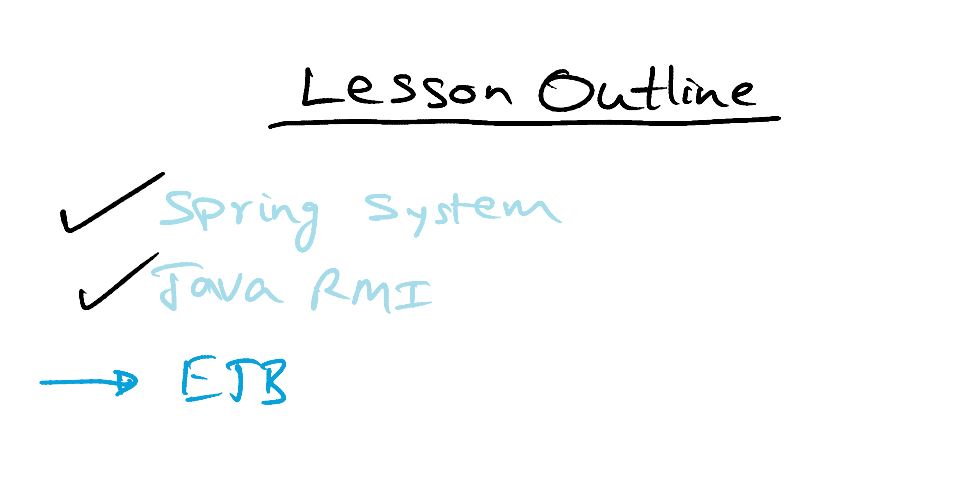 Lesson Outline
Spring System
Java RMI
EJB